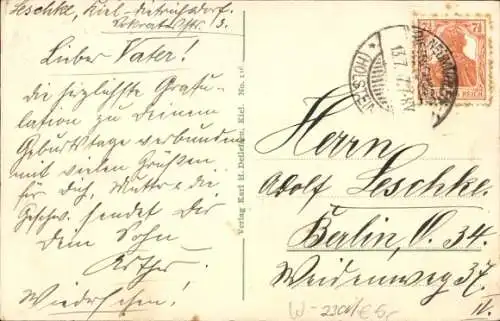 Leschke, Kiel-Dietrichsdorf.
3.
Lieber Vater!
die herzlichste Gratu-
lation zu Deinem
Geburtstage verbunden
mit vielen Grüßen
für Dich, Mutter & die
Geschw. sendet Dir
Dein Sohn
Arthur
Wiedersehen!
Verlag Karl H. Detlefsen, Kiel. No.
(HOLSTEIN)
13.7.
7½
REICH
Herrn
Adolf Leschke.
Berlin, O. 34.
Weidenweg 37.
IV.